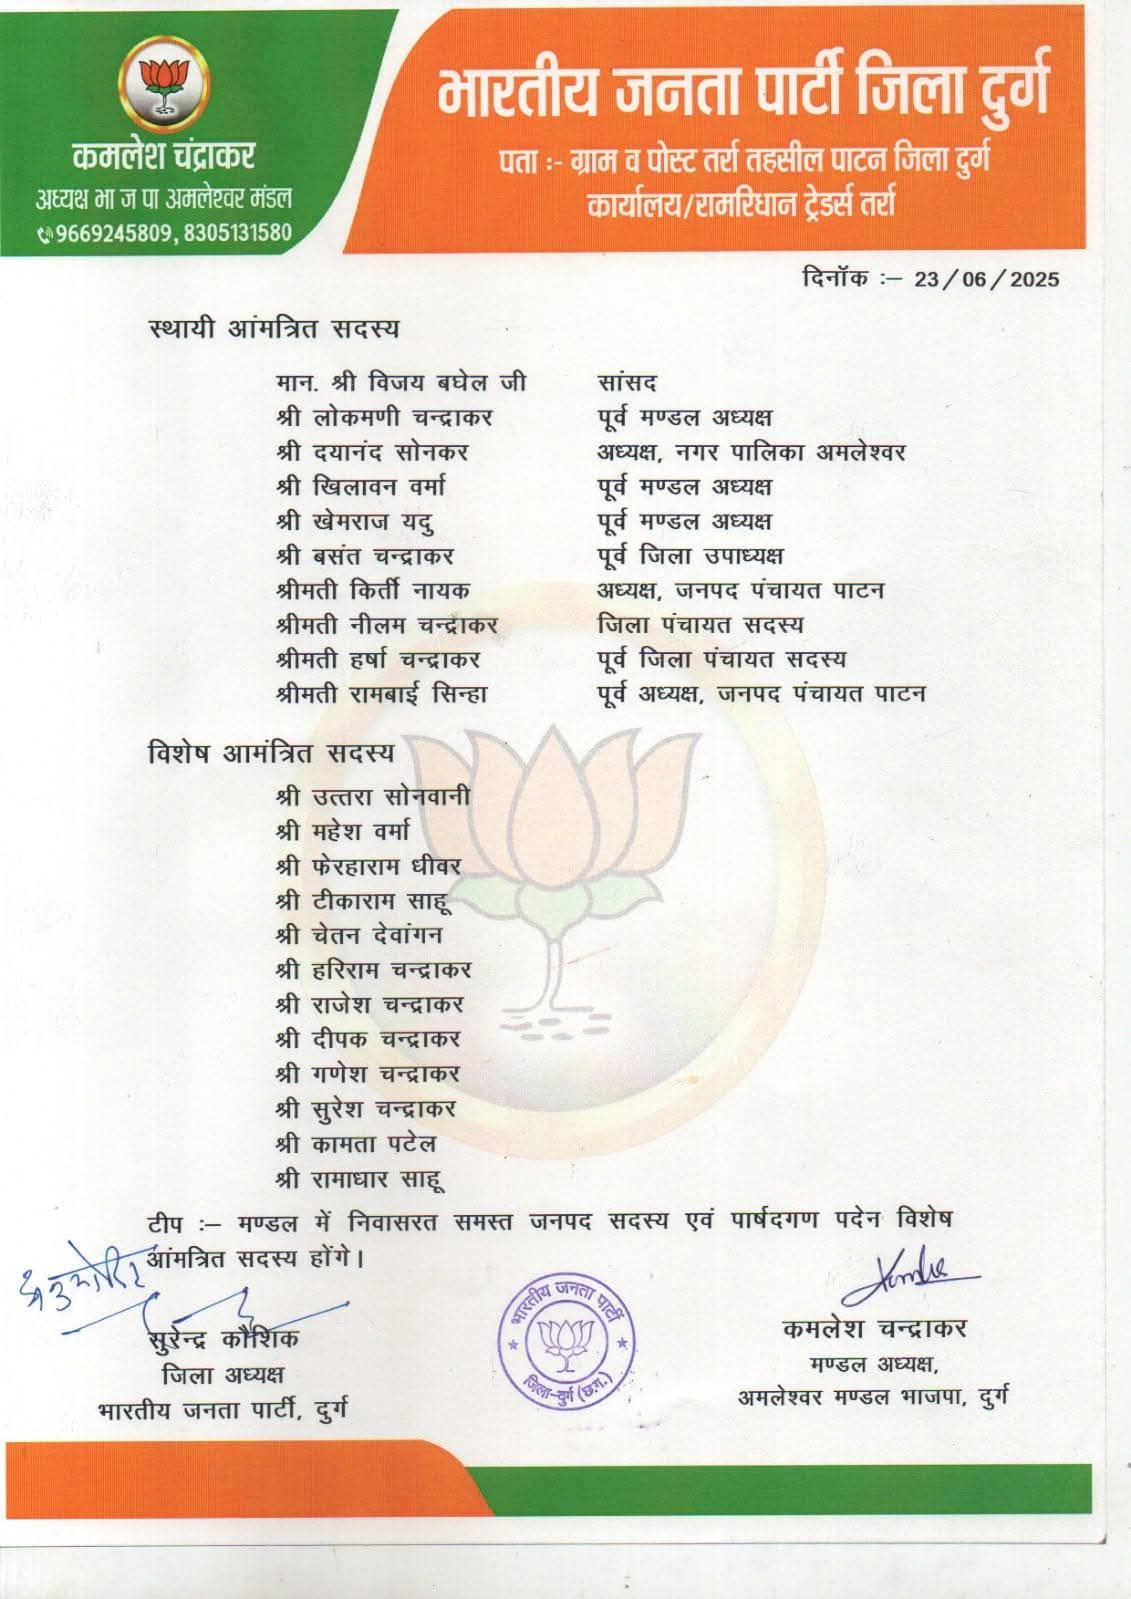 कमलेश चंद्राकर
अध्यक्ष भा ज पा अमलेश्वर मंडल
9669245809, 8305131580
भारतीय जनता पार्टी जिला दुर्ग
पता :- ग्राम व पोस्ट तर्रा तहसील पाटन जिला दुर्ग
कार्यालय/रामरिधान ट्रेडर्स तर्रा
दिनॉक :– 23/06/2025
स्थायी आंमत्रित सदस्य
मान. श्री विजय बघेल जी सांसद
श्री लोकमणी चन्द्राकर पूर्व मण्डल अध्यक्ष
श्री दयानंद सोनकर अध्यक्ष, नगर पालिका अमलेश्वर
श्री खिलावन वर्मा पूर्व मण्डल अध्यक्ष
श्री खेमराज यदु पूर्व मण्डल अध्यक्ष
श्री बसंत चन्द्राकर पूर्व जिला उपाध्यक्ष
श्रीमती किर्ती नायक अध्यक्ष, जनपद पंचायत पाटन
श्रीमती नीलम चन्द्राकर जिला पंचायत सदस्य
श्रीमती हर्षा चन्द्राकर पूर्व जिला पंचायत सदस्य
श्रीमती रामबाई सिन्हा पूर्व अध्यक्ष, जनपद पंचायत पाटन
विशेष आमंत्रित सदस्य
श्री उत्तरा सोनवानी
श्री महेश वर्मा
श्री फेरहाराम धीवर
श्री टीकाराम साहू
श्री चेतन देवांगन
श्री हरिराम चन्द्राकर
श्री राजेश चन्द्राकर
श्री दीपक चन्द्राकर
श्री गणेश चन्द्राकर
श्री सुरेश चन्द्राकर
श्री कामता पटेल
श्री रामाधार साहू
टीप :– मण्डल में निवासरत समस्त जनपद सदस्य एवं पार्षदगण पदेन विशेष
आंमत्रित सदस्य होंगे।
सुरेन्द्र कौशिक
जिला अध्यक्ष
भारतीय जनता पार्टी, दुर्ग
भारतीय जनता पार्टी
जिला-दुर्ग (छ.ग.)
कमलेश चन्द्राकर
मण्डल अध्यक्ष,
अमलेश्वर मण्डल भाजपा, दुर्ग